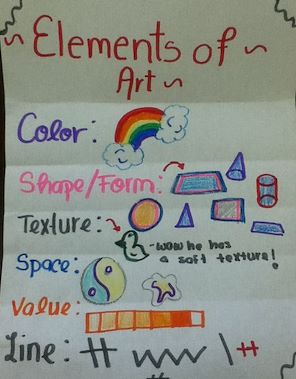 ~ Elements of ~
Art ~
Color:
Shape/Form:
Texture:
-wow he has
a soft texture!
Space:
Value:
Line: